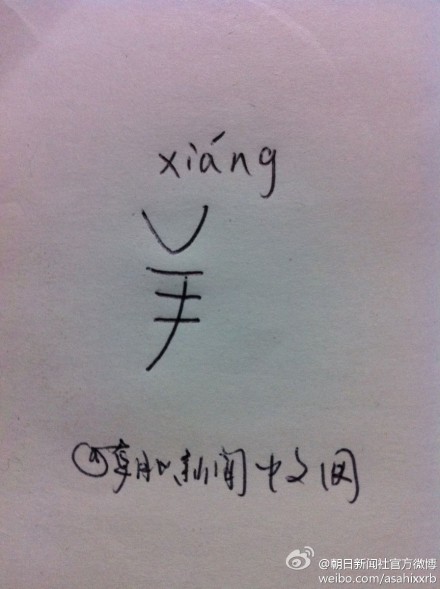 xiáng
@ 新闻中文网
@朝日新闻社官方微博
weibo.com/asahixxrb